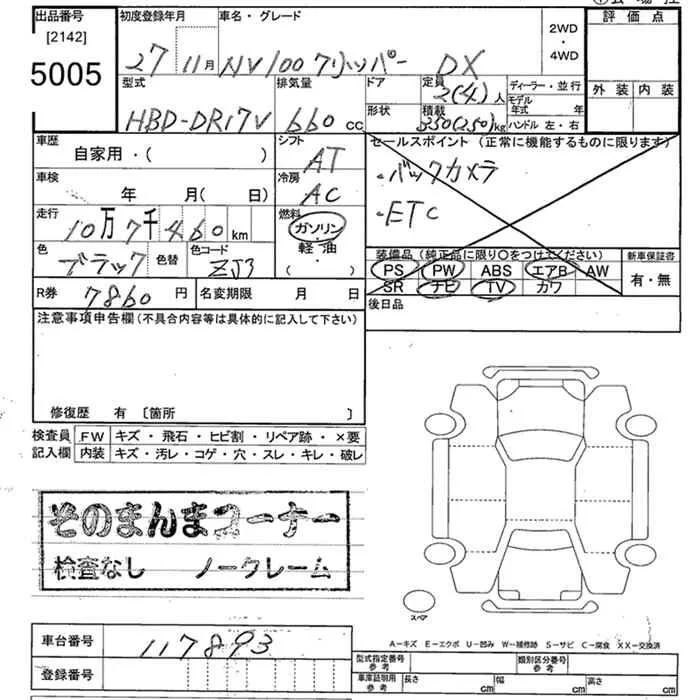 出品番号 初度登録年月 車名・グレード 評価点
[2142]
5005
27 11月 NV100クリッパー DX
2WD
・
4WD
型式 排気量 ドア 定員 ディーラー・並行 外装 内装
2(4)人
モデル年式 年
HBD-DR17V 660cc 形状 積載 350(250)kg ハンドル 左・右
車歴 シフト セールスポイント(正常に機能するものに限ります)
自家用・( ) AT
・バックカメラ
車検 冷房
年 月( 日) AC
・ETC
走行 燃料
10万7千460km ガソリン
色 色替 色コード 軽・油 装備品(純正品に限り○をつけてください) 新車保証書
ブラック ZJ3 ・( ) PS PW ABS エアB AW 有・無
SR ナビ TV カワ
R券 7860円 名変期限 月 日 後日品
注意事項申告欄(不具合内容等は具体的に記入して下さい)
修復歴 有 〔箇所 〕
検査員 FW キズ・飛石・ヒビ割・リペア跡・×要
記入欄 内装 キズ・汚レ・コゲ・穴・スレ・キレ・破レ
そのまんまコーナー
検査なし ノークレーム
スペア
車台番号 117893
A−キズ E−エクボ U−凹み W−補修跡 S−サビ C−腐食 XX−交換済
登録番号
型式指定番号 参考 類別区分番号 参考
車庫証明用 参考 長さ cm 幅 cm 高さ cm